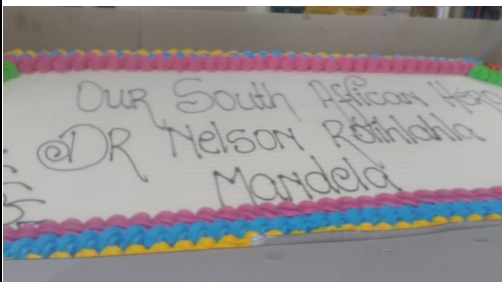 Our South African Hero
@DR Nelson Rolihlahla
Mandela